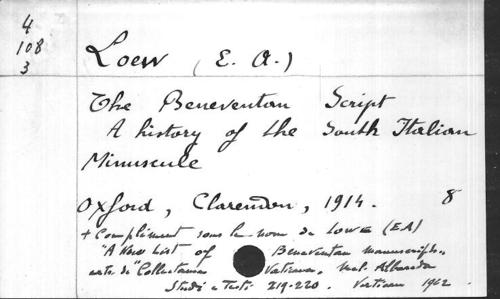 4
108
3
Loew (E. A.)
The Beneventan Script
A history of the South Italian
Minuscule
Oxford, Clarendon, 1914. 8
+ Complément sous le nom de LOWE (EA)
"A New List of Beneventan manuscripts",
extr. de "Collectanea Vaticana, Vol. Albareda
Studi e Testi 219-220. Vatican 1962